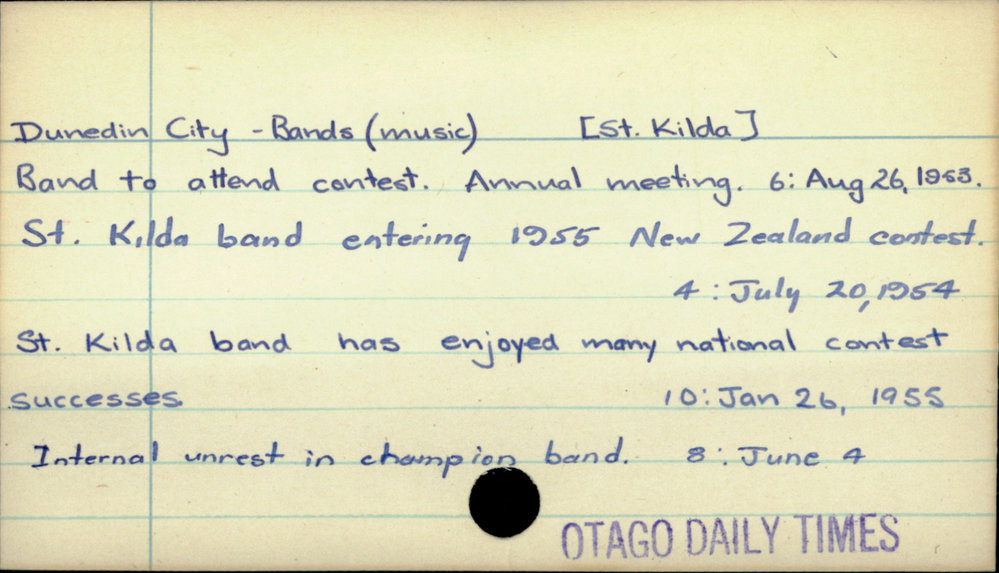 Dunedin City - Bands (music) [St. Kilda]
Band to attend contest. Annual meeting. 6: Aug 26, 1953.
St. Kilda band entering 1955 New Zealand contest.
4: July 20, 1954
St. Kilda band has enjoyed many national contest
successes. 10: Jan 26, 1955
Internal unrest in champion band. 8: June 4
OTAGO DAILY TIMES